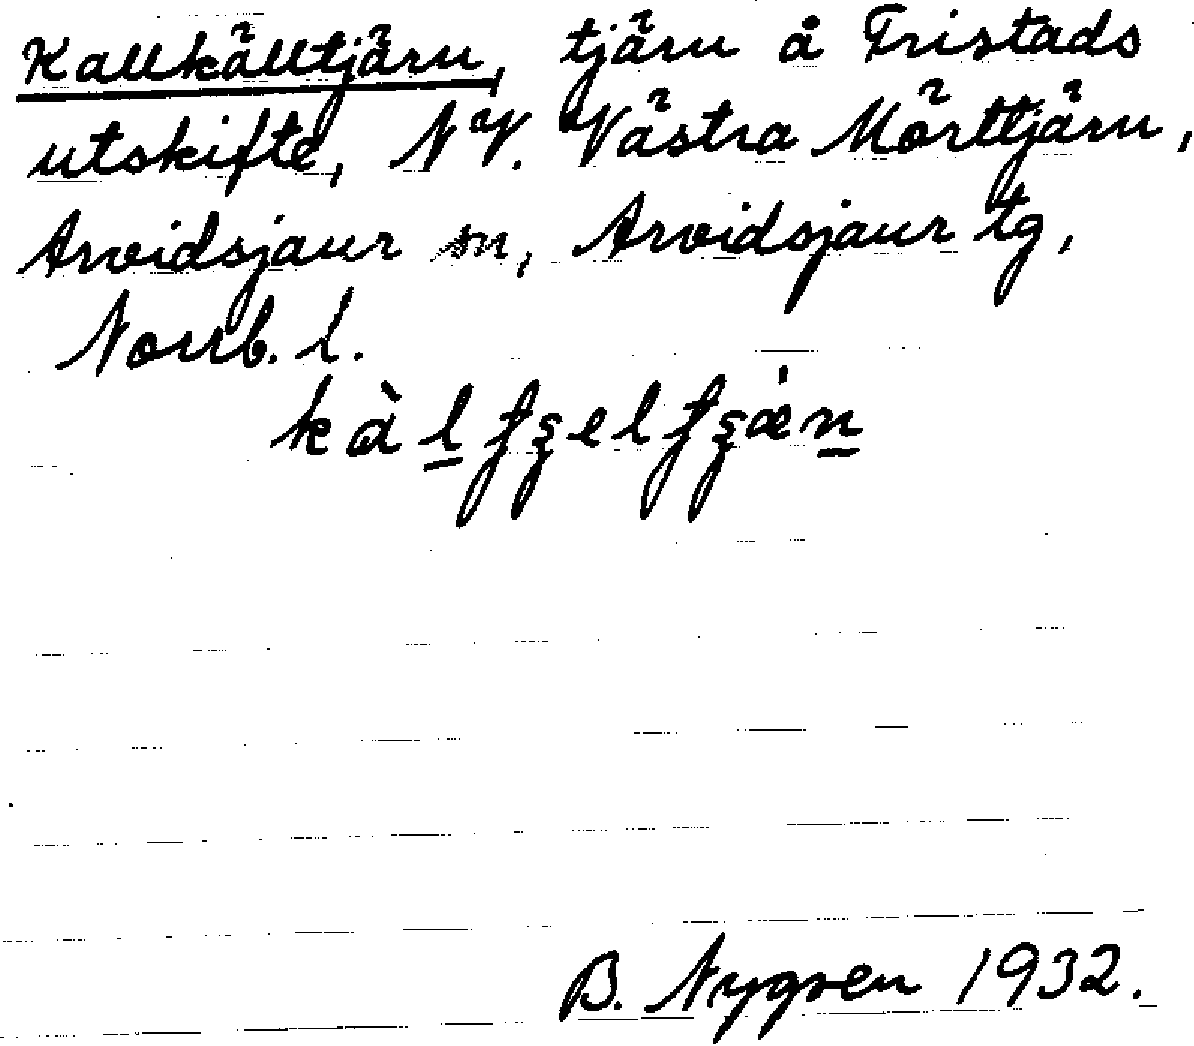 Kallkälltjärn, tjärn å Fristads
utskifte, NV. Västra Mörttjärn,
Arvidsjaur sn, Arvidsjaur tg,
Norrb. l.
B. Nygren 1932.